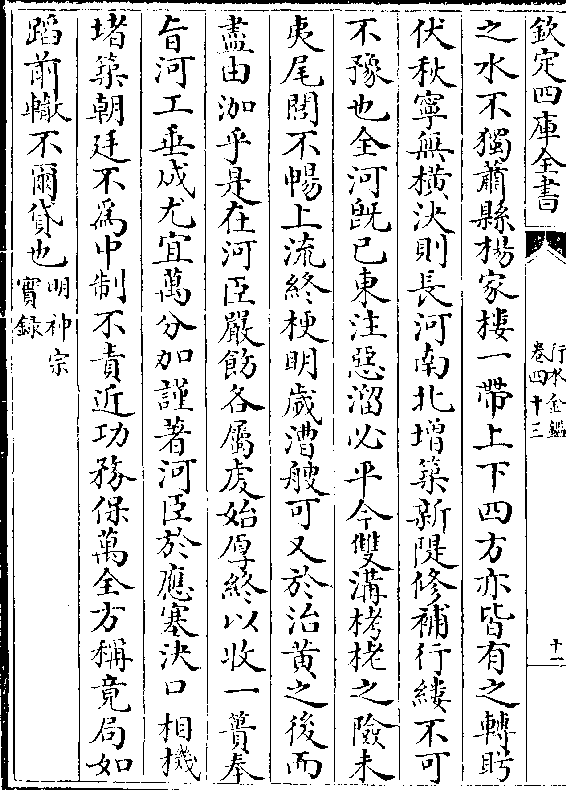 欽定四庫全書
行水金鑑
卷四十三
十一
之水不獨蕭縣楊家樓一帶上下四方亦皆有之轉盻
伏秋寧無橫決則長河南北增築新隄修補行縷不可
不豫也全河旣已東注惡溜必平今雙溝栲栳之險未
夷尾閭不暢上流終梗明歲漕艘可又於治黃之後而
盡由泇乎是在河臣嚴飭各屬虔始厚終以收一簣奉
旨河工垂成尤宜萬分加謹著河臣於應塞決口相機
堵築朝廷不爲中制不責近功務保萬全方稱竟局如
蹈前轍不爾貸也明神宗
實錄